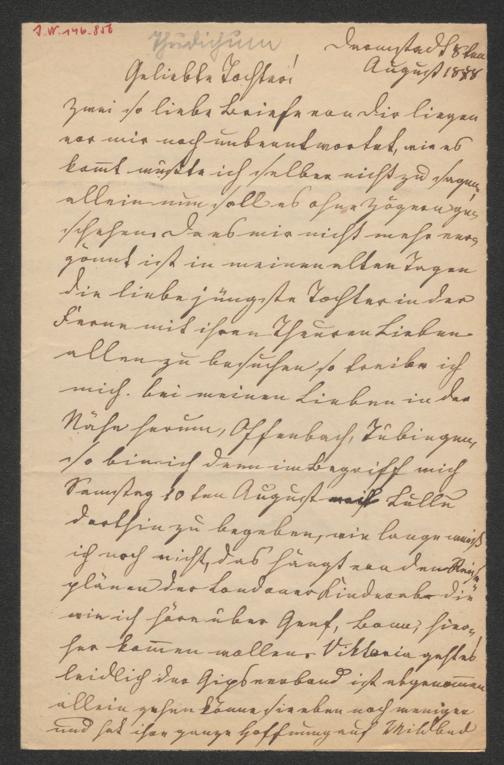 I.N. 146.856
Thudichum
Darmstadt 8ten
August 1888
Geliebte Tochter!
Zwei so liebe Briefe von Dir liegen
vor mir noch unbeantwortet, wie es
kom̅t wüßte ich selber nicht zu sagen,
allein nun soll es ohne Zögern ge-
schehen. Da es mir nicht mehr ver-
gönnt ist in meinen alten Tagen
die liebe jüngste Tochter in der
Ferne mit ihren Theuren Lieben
allen zu besuchen so treibe ich
mich bei meinen Lieben in der
Nähe herum, Offenbach, Tübingen,
so bin ich denn im Begriff mich
Samstag 10ten August Lullu
dorthin zu begeben, wie lange weiß
ich noch nicht, das hängt von den Reise
plänen der Londoner Kinder ab die
wie ich höre über Genf, Bonn, hier-
her kommen wollen. Viktoria geht es
leidlich der Gipsverband ist abgenommen
allein gehen könne sie eben noch weniger
und hat ihre ganze Hoffnung auf Wildbad